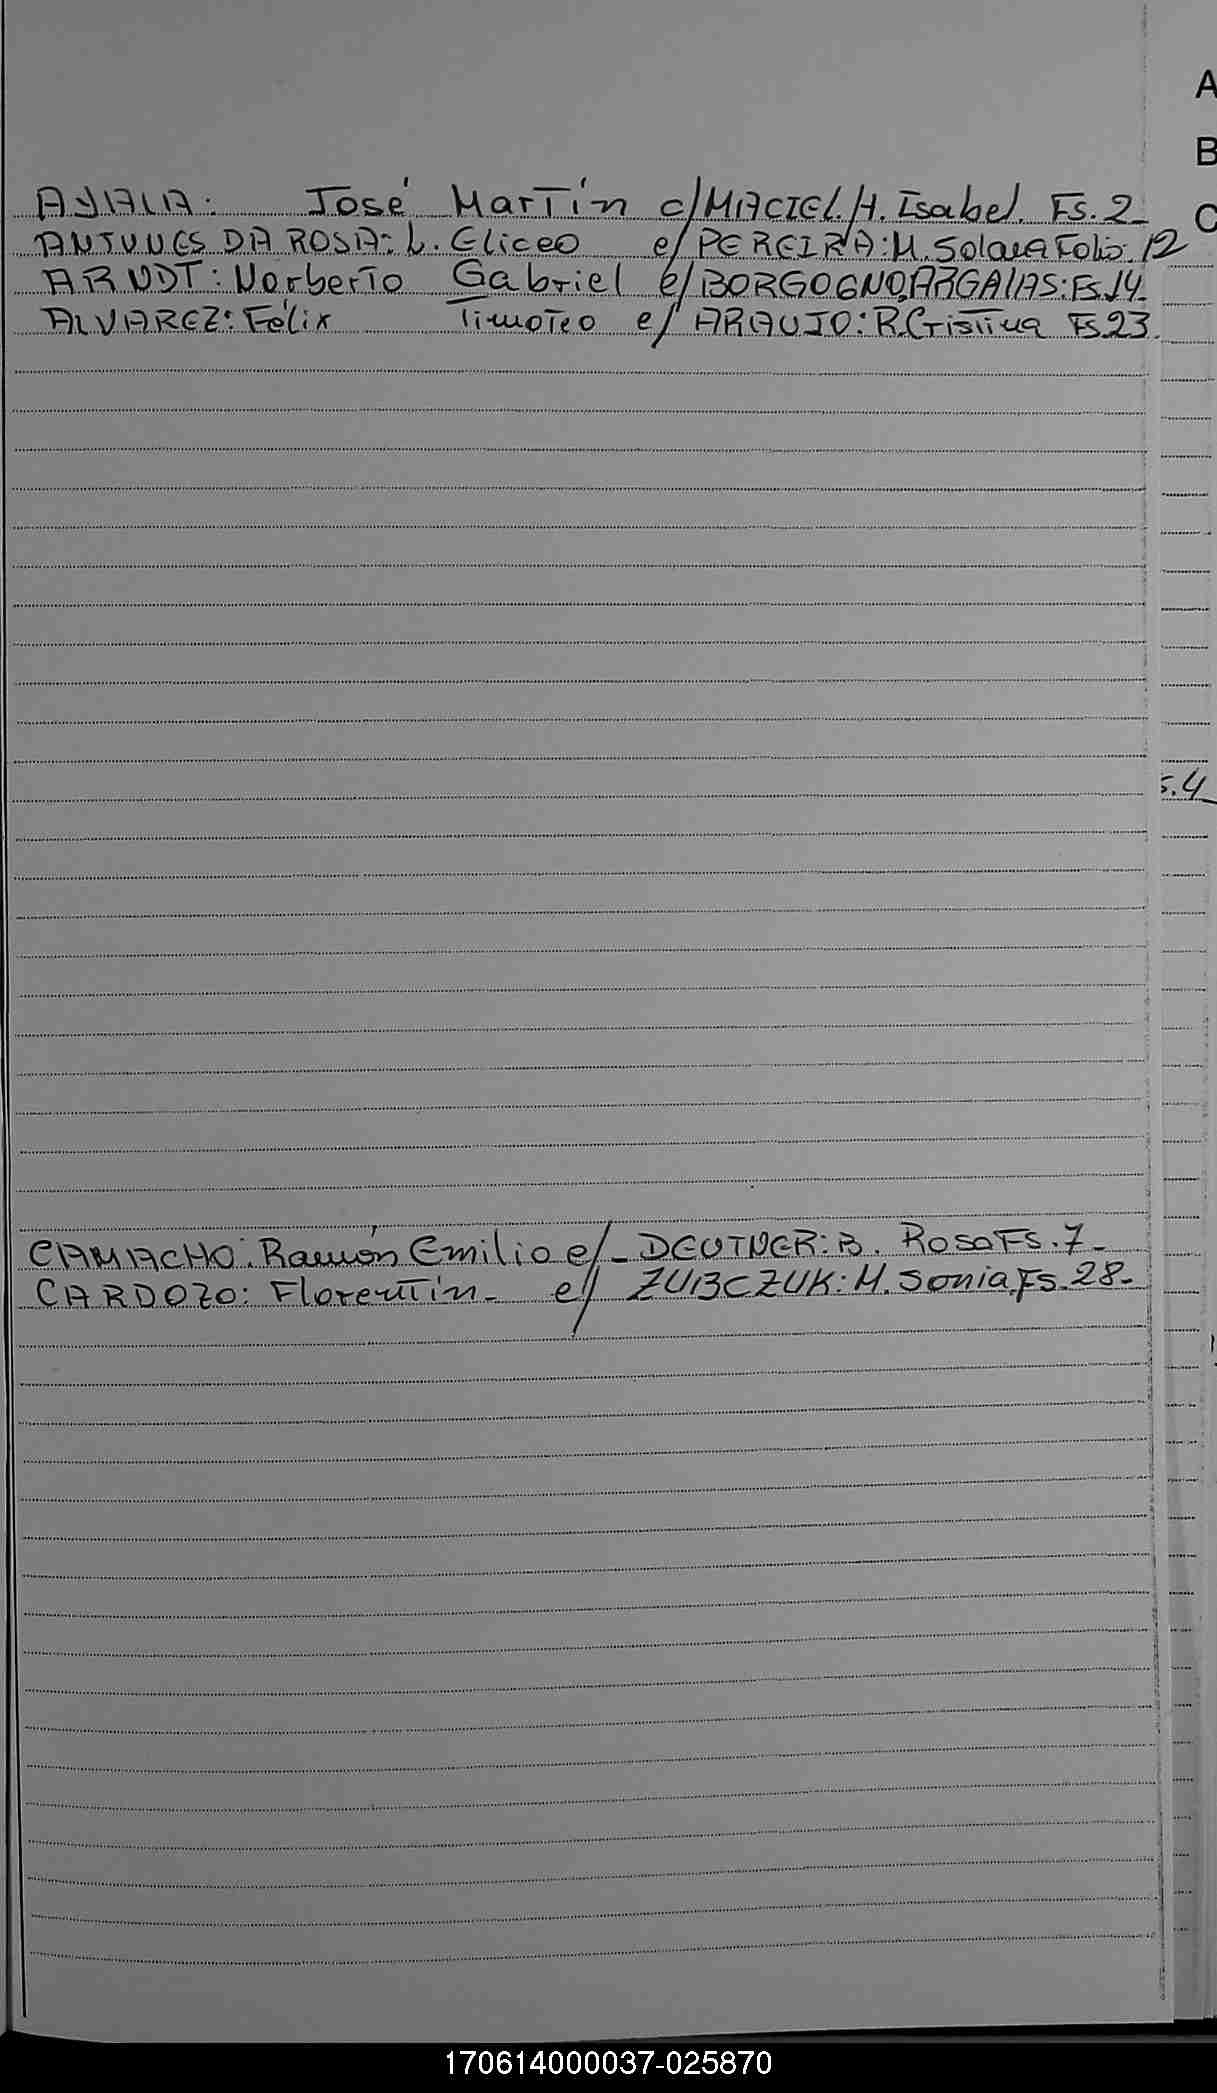 A
B
C
AYALA: José Martín c/ MACIEL. H. Isabel. Fs. 2_
ANTUNES DA ROSA: L. Eliceo c/ PEREIRA: M. Solana Folio: 12
ARNDT: Norberto Gabriel c/ BORGOGNO, ARGALAS: Fs. 14.
ALVAREZ: Félix Timoteo c/ ARAUJO: R. Cristina Fs. 23.
s. 4_
CAMACHO: Ramón Emilio c/_ DEUTNER: B. Rosa Fs. 7_
CARDOZO: Florentín_ c/ ZUBCZUK: M. Sonia. Fs. 28_
170614000037-025870